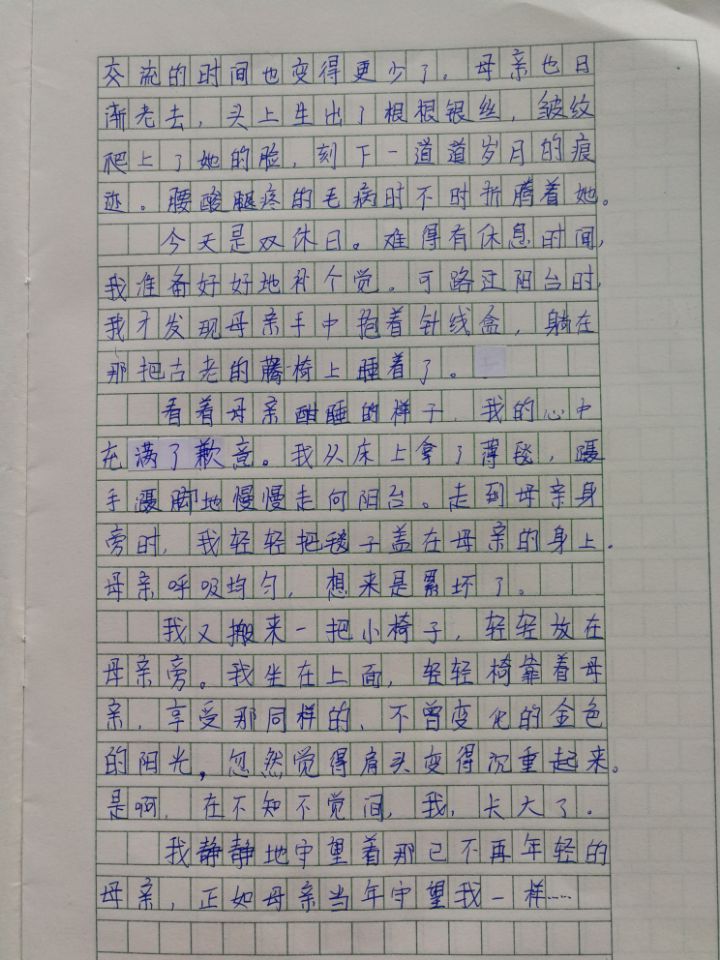 交流的时间也变得更少了。母亲也日
渐老去，头上生出了根根银丝，皱纹
爬上了她的脸，刻下一道道岁月的痕
迹。腰酸腿疼的毛病时不时折腾着她。
今天是双休日。难得有休息时间，
我准备好好地补个觉。可路过阳台时，
我才发现母亲手中抱着针线盒，躺在
那把古老的藤椅上睡着了。
看着母亲酣睡的样子，我的心中
充满了歉意。我从床上拿了薄毯，蹑
手蹑脚地慢慢走向阳台。走到母亲身
旁时，我轻轻把毯子盖在母亲的身上。
母亲呼吸均匀，想来是累坏了。
我又搬来一把小椅子，轻轻放在
母亲旁。我坐在上面，轻轻椅靠着母
亲，享受那同样的、不曾变化的金色
的阳光，忽然觉得肩头变得沉重起来。
是啊，在不知不觉间，我，长大了。
我静静地守望着那已不再年轻的
母亲，正如母亲当年守望我一样……